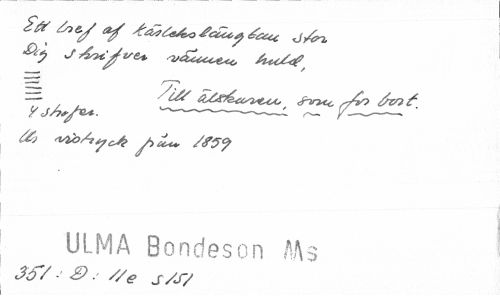 Ett bref af Kärlekslängtan stor
Dig skrifver vännen huld,
Till älskaren, som for bort.
4 strofer.
Ur vistryck från 1859
ULMA Bondeson Ms
351 : D : 11e s151